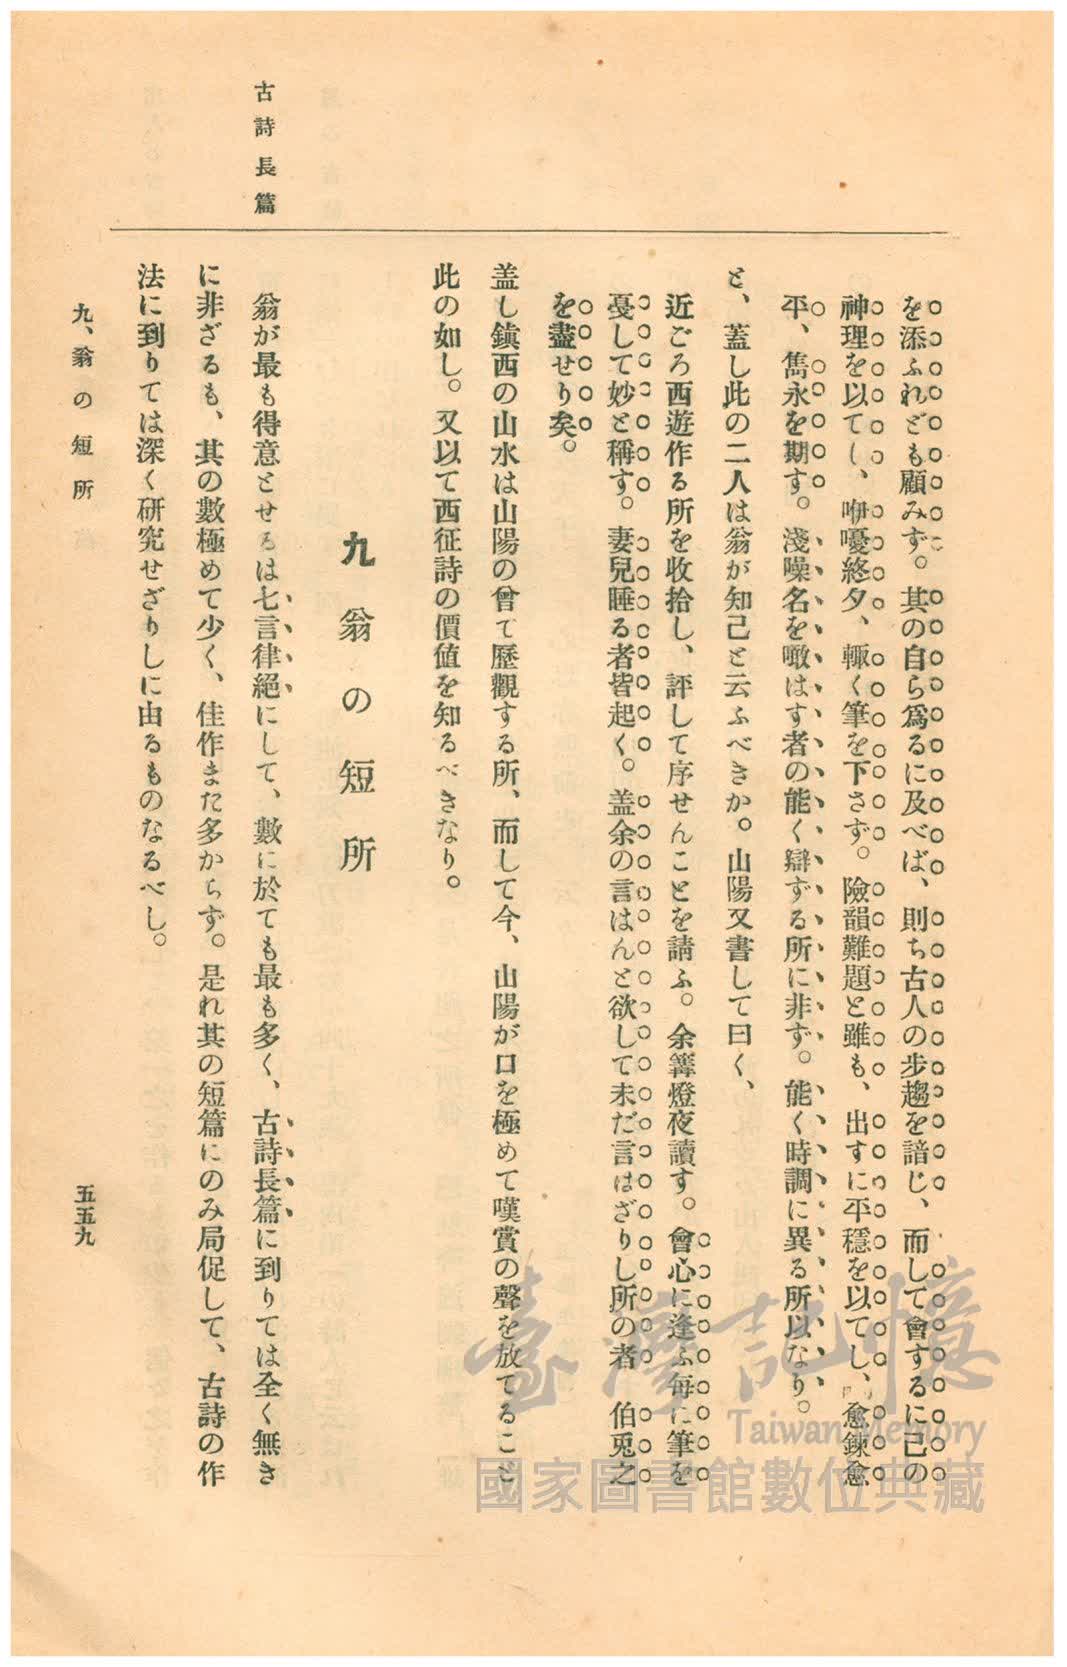 古詩長篇
を添ふれども顧みず。其の自ら爲るに及べば、則ち古人の步趨を諳じ、而して會するに己の
神理を以てし、咿嚘終夕、輙く筆を下さず。險韻難題と雖も、出すに平穩を以てし、愈鍊愈
平、雋永を期す。淺噪名を噉はす者の能く辯ずる所に非ず。能く時調に異る所以なり。
と、蓋し此の二人は翁が知己と云ふべきか。山陽又書して曰く、
近ごろ西遊作る所を收拾し、評して序せんことを請ふ。余篝燈夜讀す。會心に逢ふ每に筆を
戞して妙と稱す。妻兒睡る者皆起く。盖余の言はんと欲して未だ言はざりし所の者 伯兎之
を盡せり矣。
盖し鎭西の山水は山陽の曾て歷觀する所、而して今、山陽が口を極めて嘆賞の聲を放てること
此の如し。又以て西征詩の價値を知るべきなり。
九 翁の短所
翁が最も得意とせるは七言律絕にして、數に於ても最も多く、古詩長篇に到りては全く無き
に非ざるも、其の數極めて少く、佳作また多からず。是れ其の短篇にのみ局促して、古詩の作
法に到りては深く硏究せざりしに由るものなるべし。
九、翁の短所
五五九
臺灣記憶
Taiwan Memory
國家圖書館數位典藏